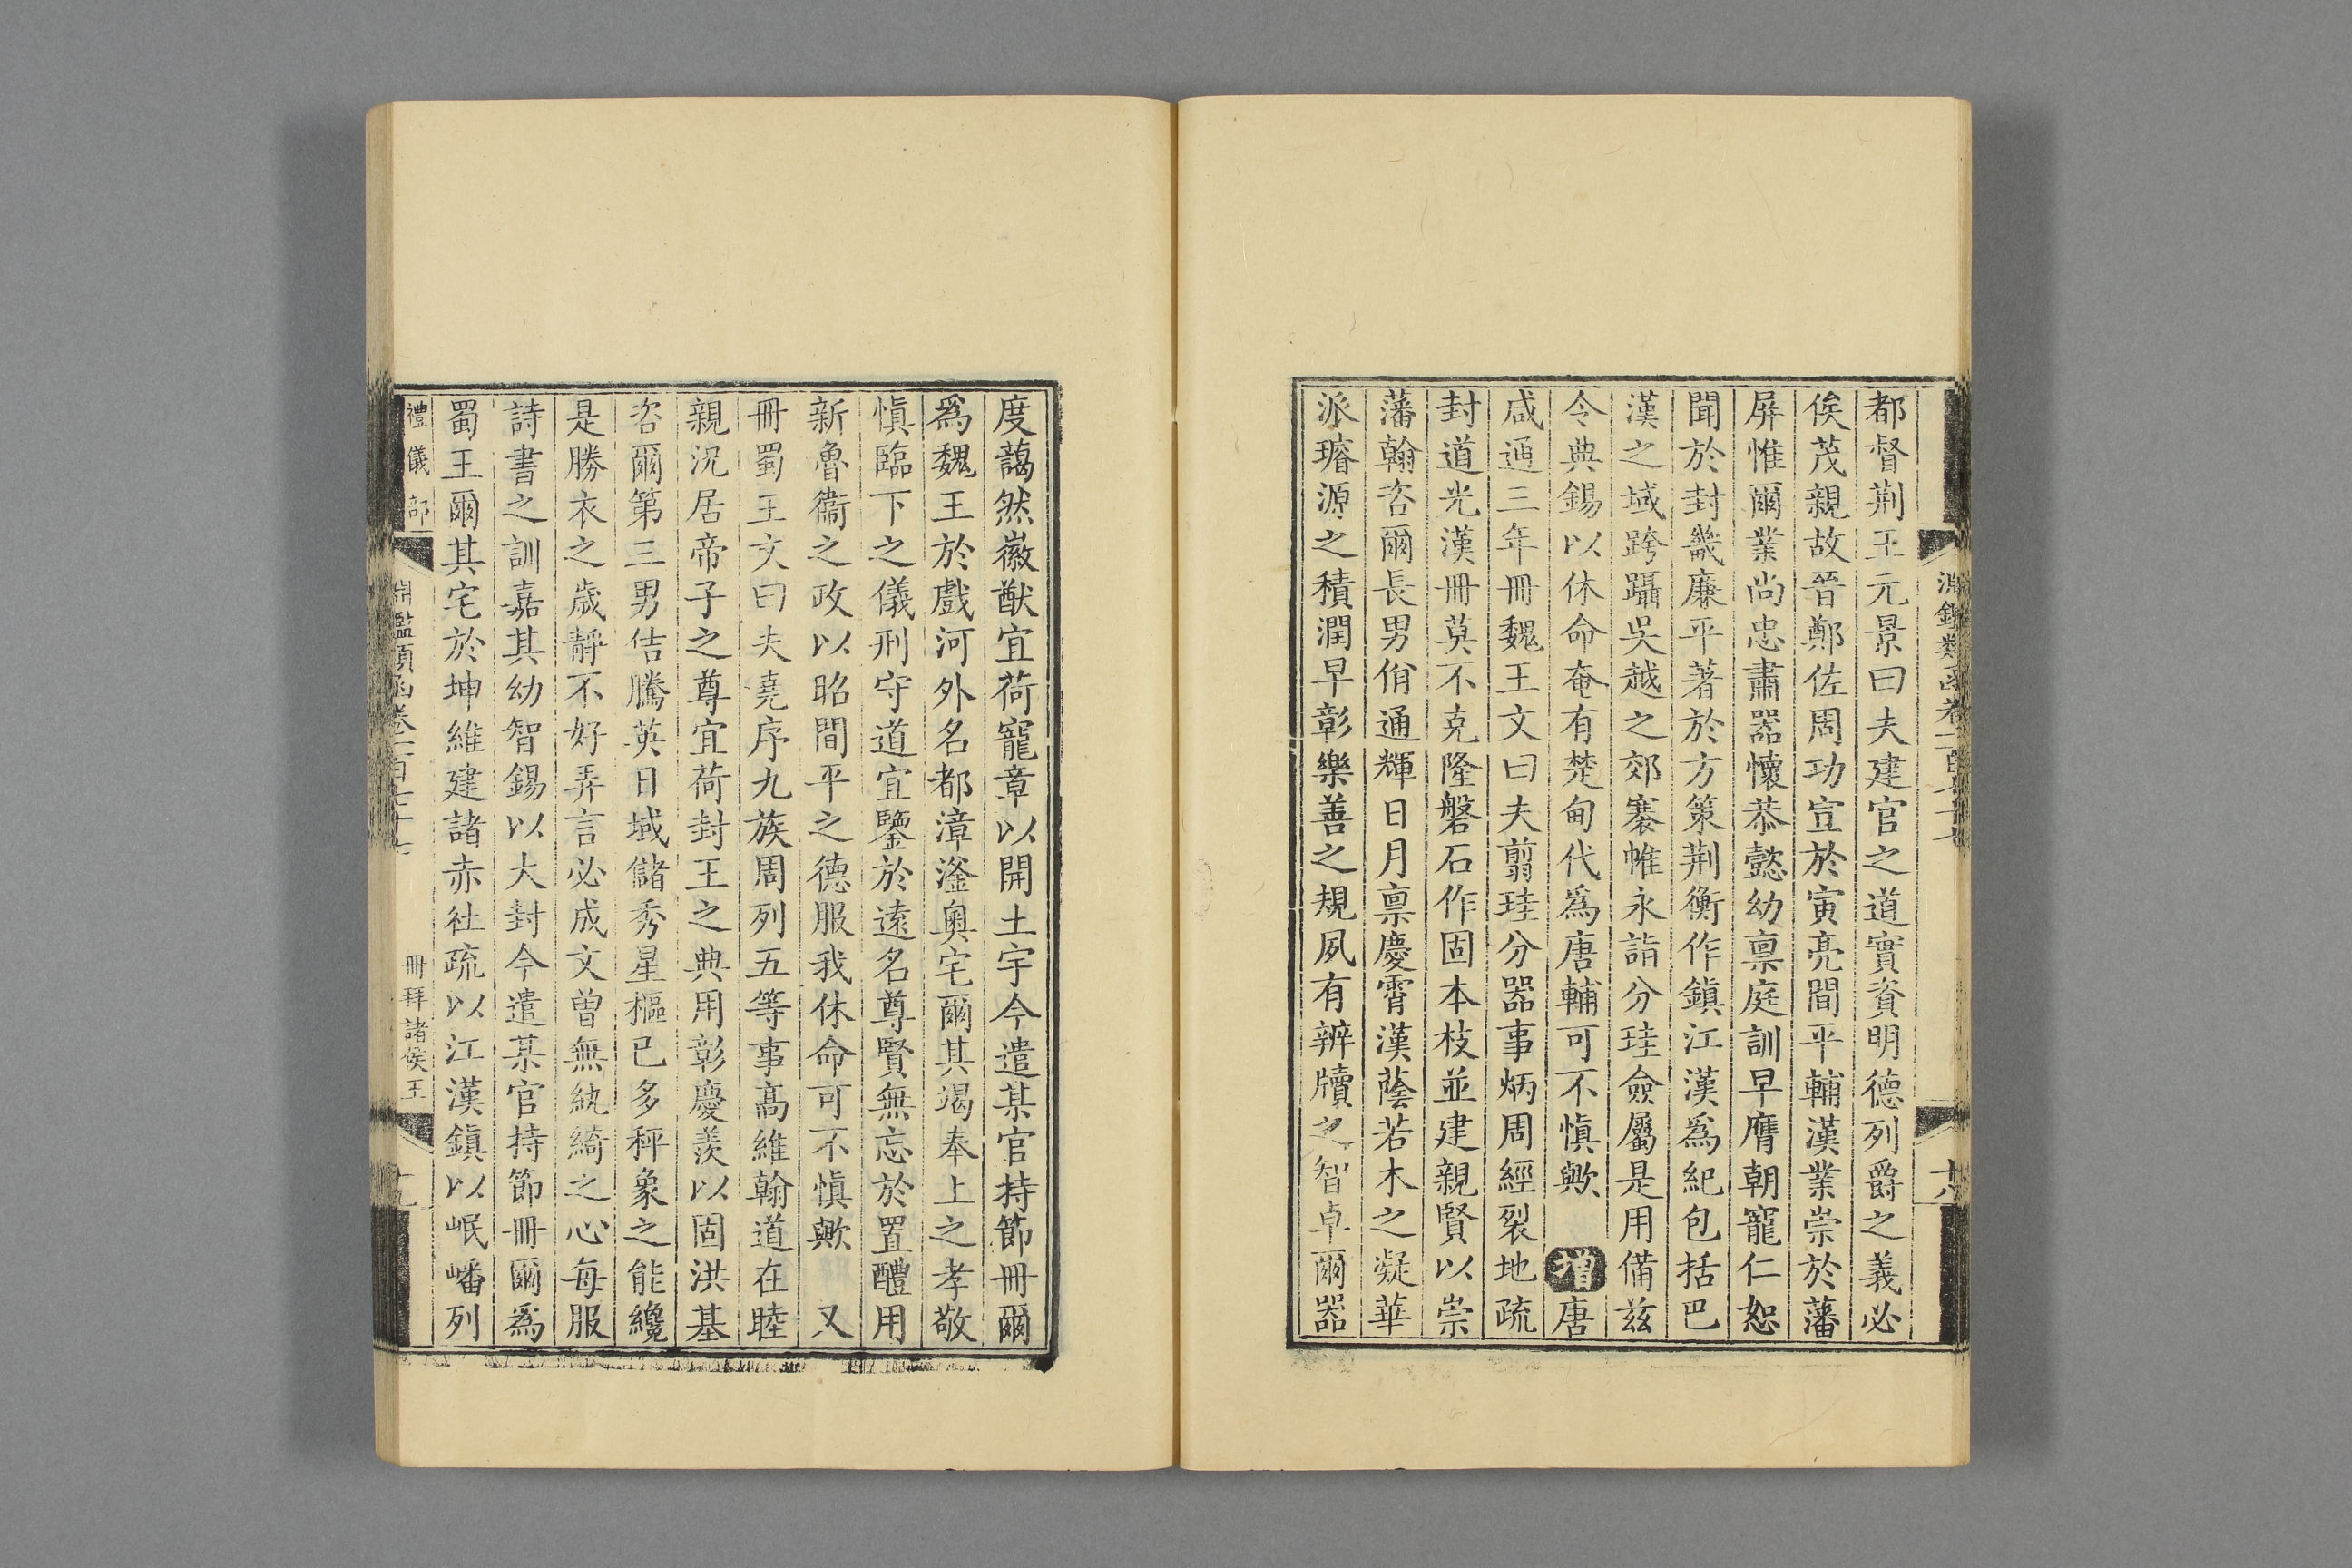 淵鑑類函卷二百七十七
十八
都督荆王元景曰夫建官之道實資明德列爵之義必
俟茂親故晉鄭佐周功宣於寅亮間平輔漢業崇於藩
屏惟爾業尚忠肅器懷恭懿幼禀庭訓早膺朝寵仁恕
聞於封畿廉平著於方策荆衡作鎭江漢爲紀包括巴
漢之域跨躡吳越之郊褰帷永詣分珪僉屬是用備兹
令典錫以休命奄有楚甸代爲唐輔可不愼歟 增唐
咸通三年冊魏王文曰夫翦珪分器事炳周經裂地疏
封道光漢冊莫不克隆磐石作固本枝並建親賢以崇
藩翰咨爾長男佾通輝日月禀慶霄漢蔭若木之凝華
派璿源之積潤早彰樂善之規夙有辨牘之智卓爾器
度藹然徽猷宜荷寵章以開土宇今遣某官持節冊爾
爲魏王於戲河外名都漳滏奧宅爾其竭奉上之孝敬
愼臨下之儀刑守道宜鑒於遠名尊賢無忘於置醴用
新魯衞之政以昭間平之德服我休命可不愼歟 又
冊蜀王文曰夫堯序九族周列五等事髙維翰道在睦
親況居帝子之尊宜荷封王之典用彰慶羨以固洪基
咨爾第三男佶騰英日域儲秀星樞已多秤象之能纔
是勝衣之歲靜不好弄言必成文曾無紈綺之心每服
詩書之訓嘉其幼智錫以大封今遣某官持節冊爾爲
蜀王爾其宅於坤維建諸赤社疏以江漢鎭以岷嶓列
禮儀部
淵鑑類函卷二百七十七
冊拜諸侯王
十九